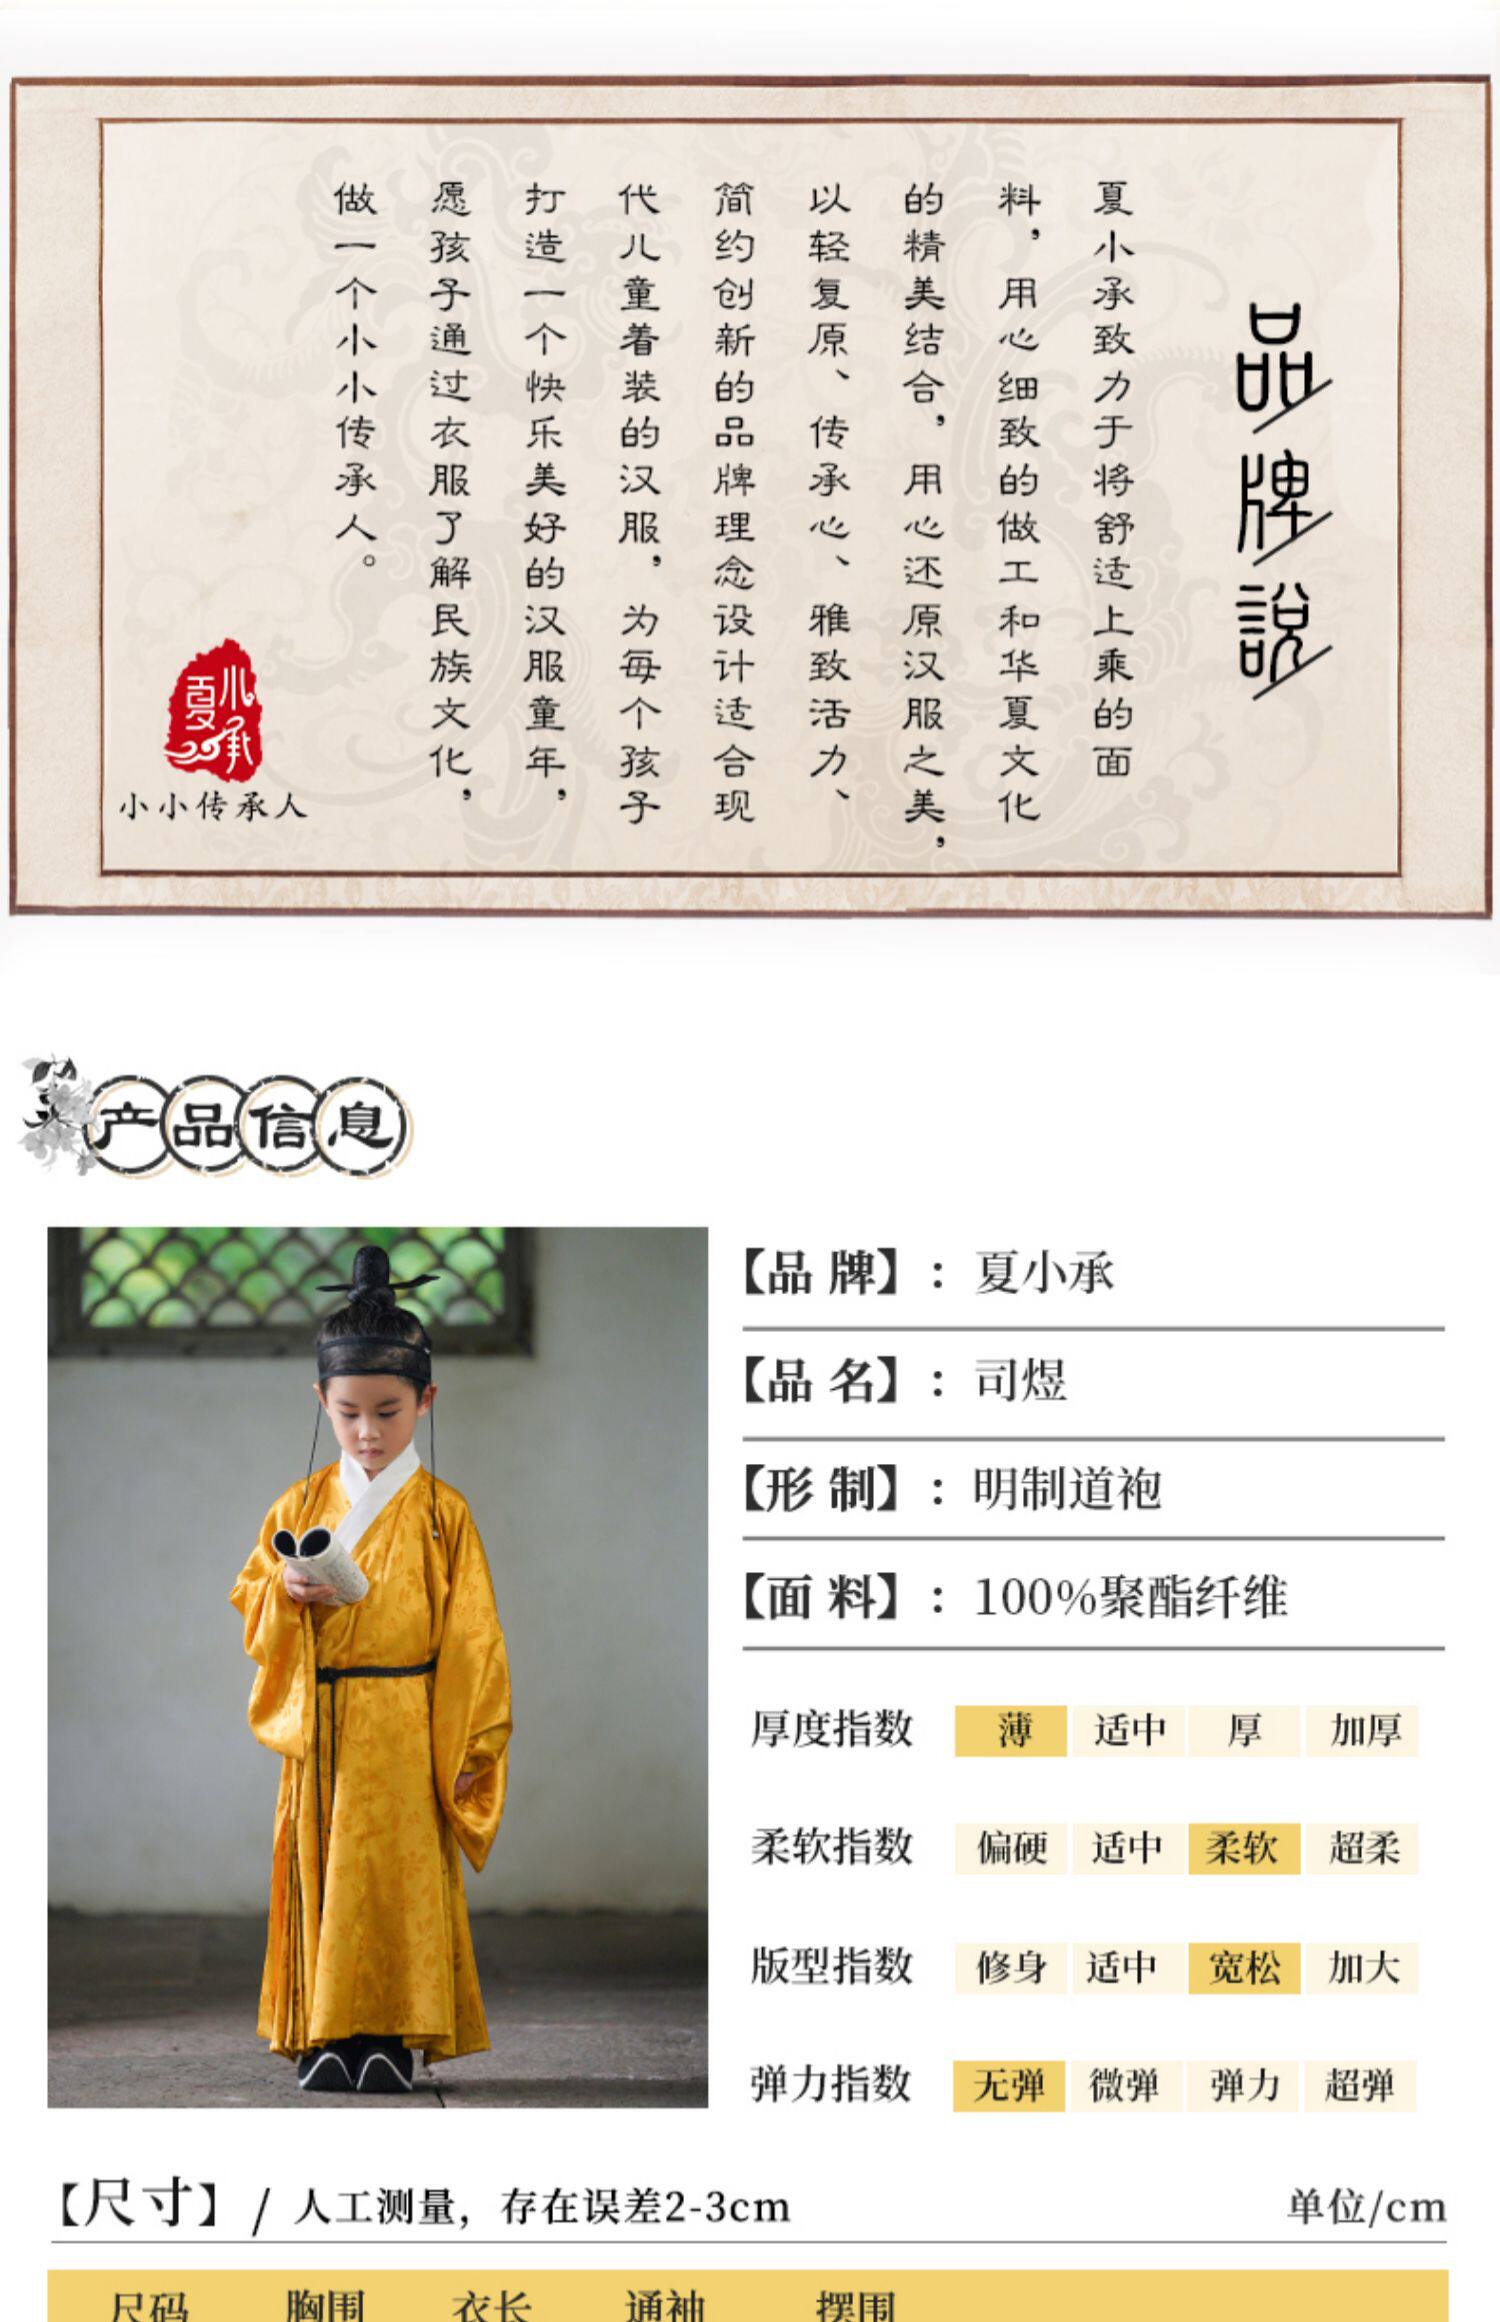 品牌說
夏小承致力于将舒适上乘的面
料，用心细致的做工和华夏文化
的精美结合，用心还原汉服之美，
以轻复原、传承心、雅致活力、
简约创新的品牌理念设计适合现
代儿童着装的汉服，为每个孩子
打造一个快乐美好的汉服童年，
愿孩子通过衣服了解民族文化，
做一个小小传承人。
夏小承
小小传承人
产品信息
【品 牌】：夏小承
【品 名】：司煜
【形 制】：明制道袍
【面 料】：100%聚酯纤维
厚度指数 薄 适中 厚 加厚
柔软指数 偏硬 适中 柔软 超柔
版型指数 修身 适中 宽松 加大
弹力指数 无弹 微弹 弹力 超弹
【尺寸】/ 人工测量，存在误差2-3cm 单位/cm
尺码 胸围 衣长 通袖 摆围